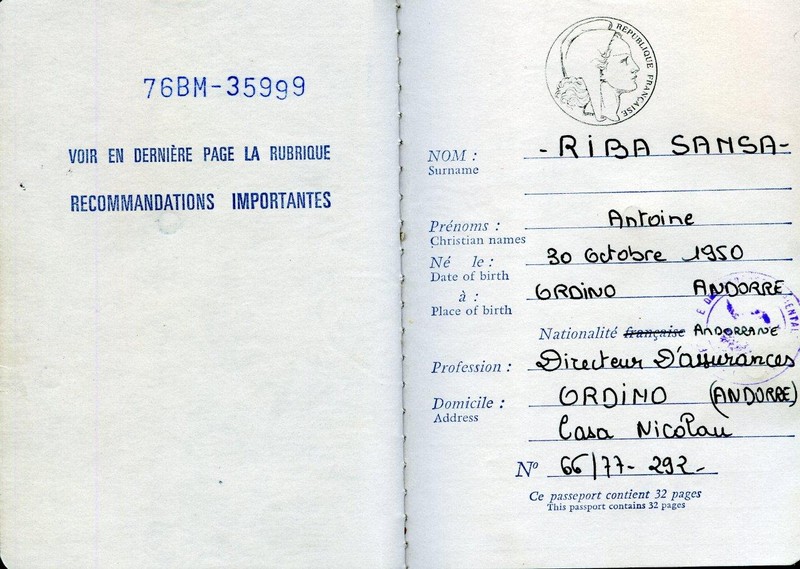 76BM-35999
VOIR EN DERNIÈRE PAGE LA RUBRIQUE
RECOMMANDATIONS IMPORTANTES
RÉPUBLIQUE FRANÇAISE
NOM : - RIBA SANSA -
Surname
Prénoms : Antoine
Christian names
Né le : 30 Octobre 1950
Date of birth
à : ORDINO ANDORRE
Place of birth
Nationalité française ANDORRANE
Profession : Directeur D'assurances
Domicile : ORDINO (ANDORRE)
Address
Casa Nicolau
Nº 66/77-292-
Ce passeport contient 32 pages
This passport contains 32 pages